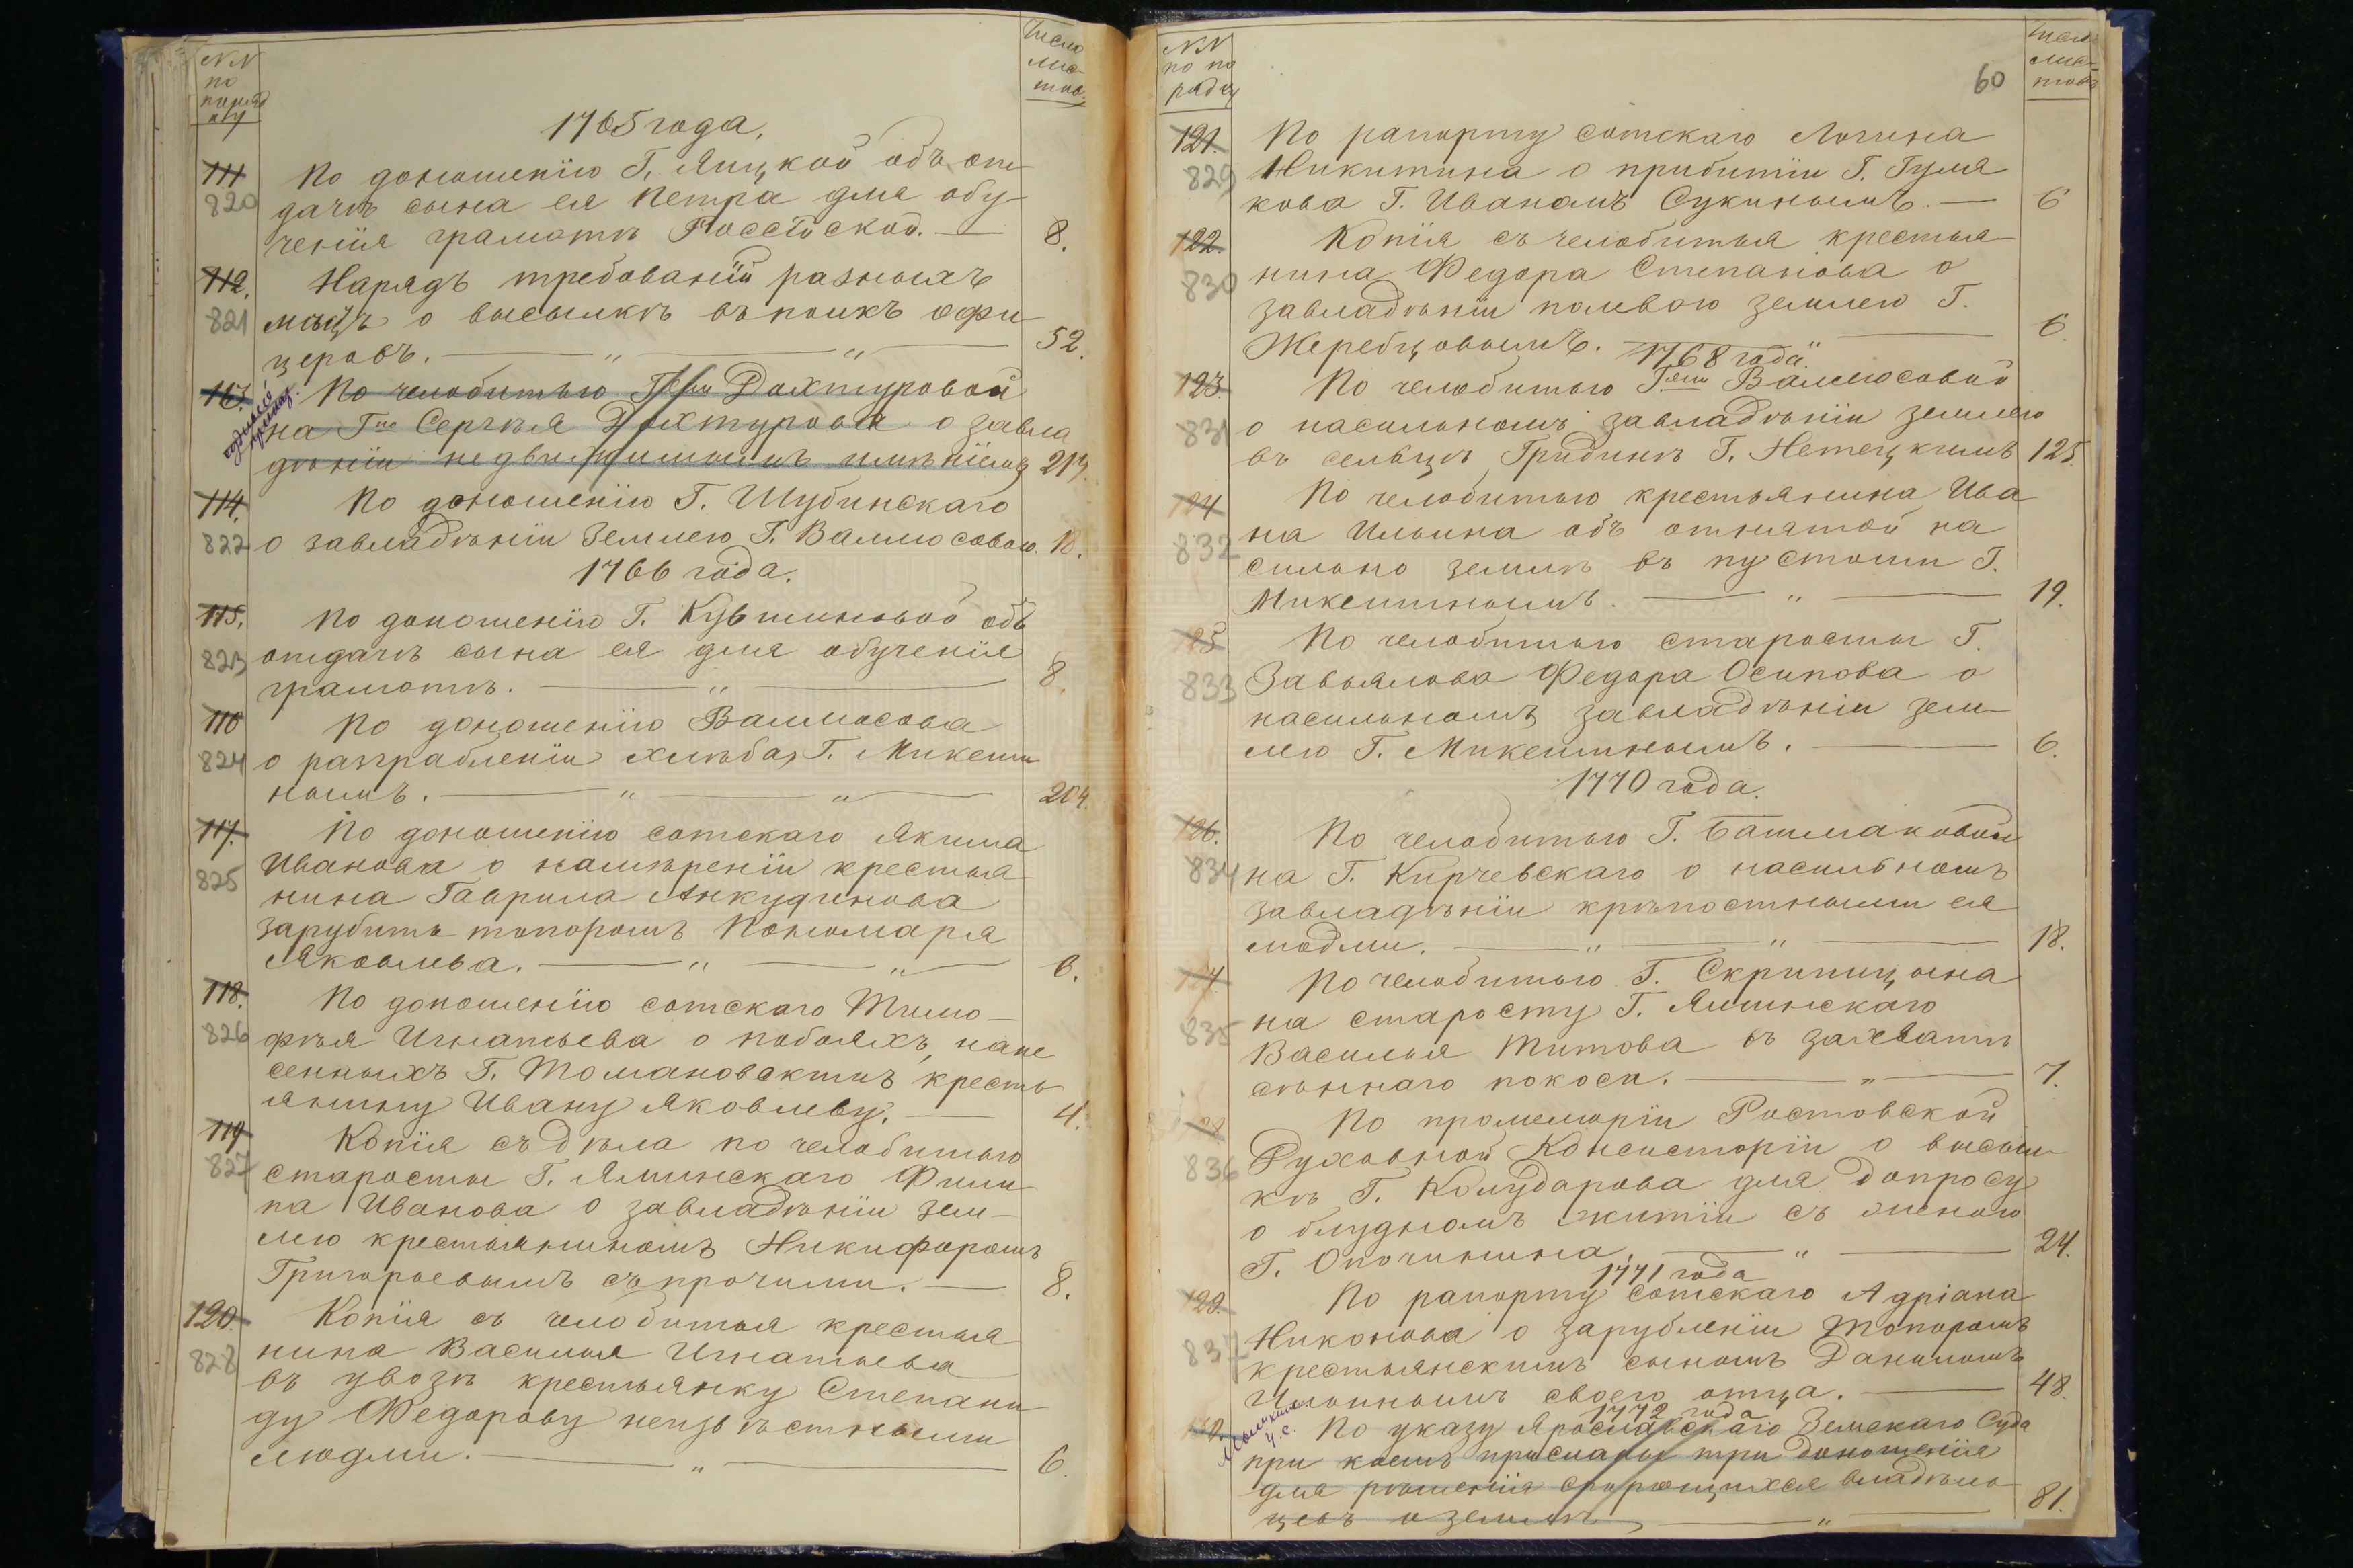 NN
по
поряд
ку
Число
лис-
товъ.
1765 года.
111
820
По доношенію Г. Яицкой объ от-
дачѣ сына ея Петра для обу-
ченія грамотѣ Россійской. — 8.
112.
821
Нарядъ требованій разныхъ
мѣстъ о высылкѣ въ полкъ офи-
церовъ. — " — " — 52.
113.
По челобитью Гжи Дохтуровой
на Гна Сергѣя Дохтурова о завла
дѣніи недвижимымъ имѣніемъ 213.
114.
822
По доношенію Г. Шубинскаго
о завладѣніи землею Г. Валмосовою. 10.
1766 года.
115.
823
По доношенію Г. Кувшиновой объ
отдачѣ сына ея для обученія
грамотѣ. — " — 8.
116
824
По доношенію Валмосова
о разграбленіи хлѣба, Г. Микеши
нымъ. — " — " — 204.
117.
825
По доношенію сотскаго Якима
Иванова о намѣреніи крестья-
нина Гаврила Анкудинова
зарубить топоромъ Пономаря
Яковлева. — " — " — 6.
118.
826
По доношенію сотскаго Тимо-
фѣя Игнатьева о побояхъ, нане
сенныхъ Г. Томановскимъ кресть-
янину Ивану Яковлеву. — 4.
119
827
Копія съ дѣла по челобитью
старосты Г. Ялминскаго Фили
па Иванова о завладѣніи зем-
лею крестьяниномъ Никифоромъ
Григорьевымъ съ прочими. — 8.
120.
828
Копія съ челобитья крестья
нина Василья Игнатьева
въ увозѣ крестьянку Степани
ду Федорову неизвѣстными
людми. — " — 6.
NN
по по
рядку
60
Число
лис-
товъ
121.
829
По рапорту сотскаго Логина
Никитина о прибитіи Г. Гуля
кова Г. Иваномъ Сукинымъ. — 6
122.
830
Копія съ челобитья крестья-
нина Федора Степанова о
завладѣніи полевою землею Г.
Жеребцовымъ. — " — 6.
1768 года.
123.
831
По челобитью Гжи Валмосовой
о насильномъ завладѣніи землею
въ сельцѣ Гридинѣ Г. Нетецкимъ 125.
124
832
По челобитью крестьянина Ива
на Ильина объ отнятой на
сильно землѣ въ пустоши Г.
Микешинымъ. — " — 19.
125
833
По челобитью старосты Г.
Завьялова Федора Осипова о
насильномъ завладѣніи зем-
лею Г. Микешинымъ. — 6.
1770 года.
126.
834
По челобитью Г. Башмаковой
на Г. Кирчевскаго о насильномъ
завладѣніи крѣпостными ея
людми. — " — " — 18.
127
835
По челобитью Г. Скрипицына
на старосту Г. Ялминскаго
Василья Титова въ захватѣ
сѣннаго покоса. — " — 7.
128
836
По промеморіи Ростовской
Духовной Консисторіи о высыл-
кѣ Г. Колударова для допросу
о блудномъ житіи съ женою
Г. Опочинина. — " — 24.
1771 года
129.
837
По рапорту сотскаго Адріана
Никонова о зарубленіи топоромъ
крестьянскимъ сыномъ Даниломъ
Ильинымъ своего отца. — 48.
1772 года
130.
По указу Ярославскаго Земскаго Суда
при коемъ присланы три доношенія
для рѣшенія спорющихся владѣль-
цевъ о землѣ — " — 81.